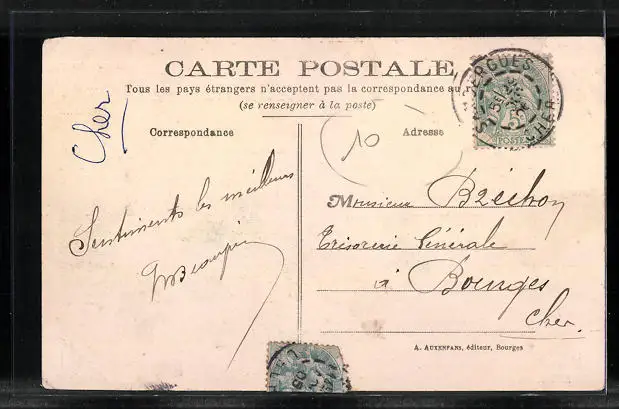 CARTE POSTALE
Tous les pays étrangers n'acceptent pas la correspondance au
(se renseigner à la poste)
Cher
Correspondance
Adresse
10
5
POSTES
CHER
Sentiments les meilleurs
Monsieur Bzéchon
Trésorerie Générale
à Bourges
Cher.
A. AUXENFANS, éditeur, Bourges